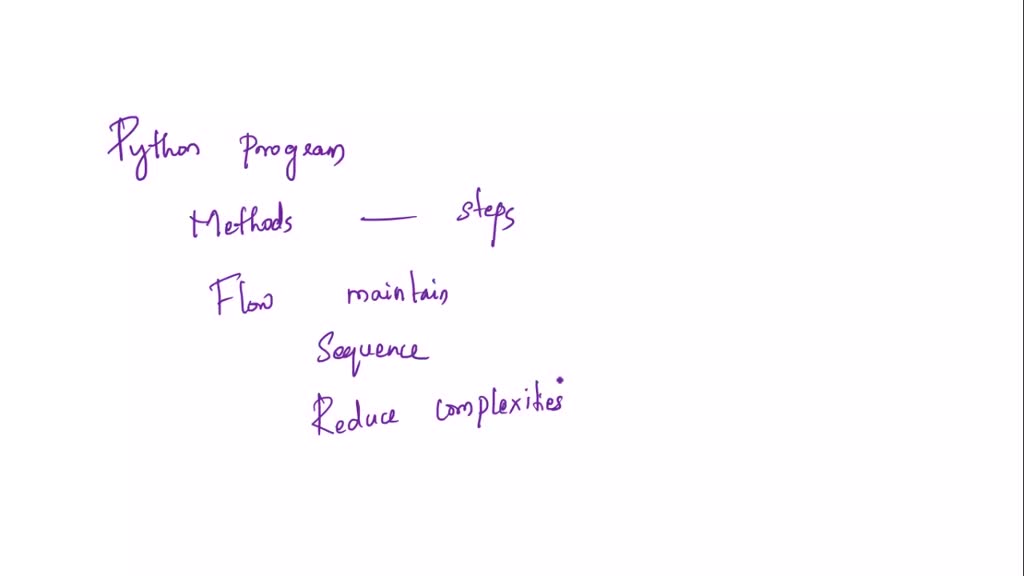 Python program
Methods — steps
Flow maintain
Sequence
Reduce complexities